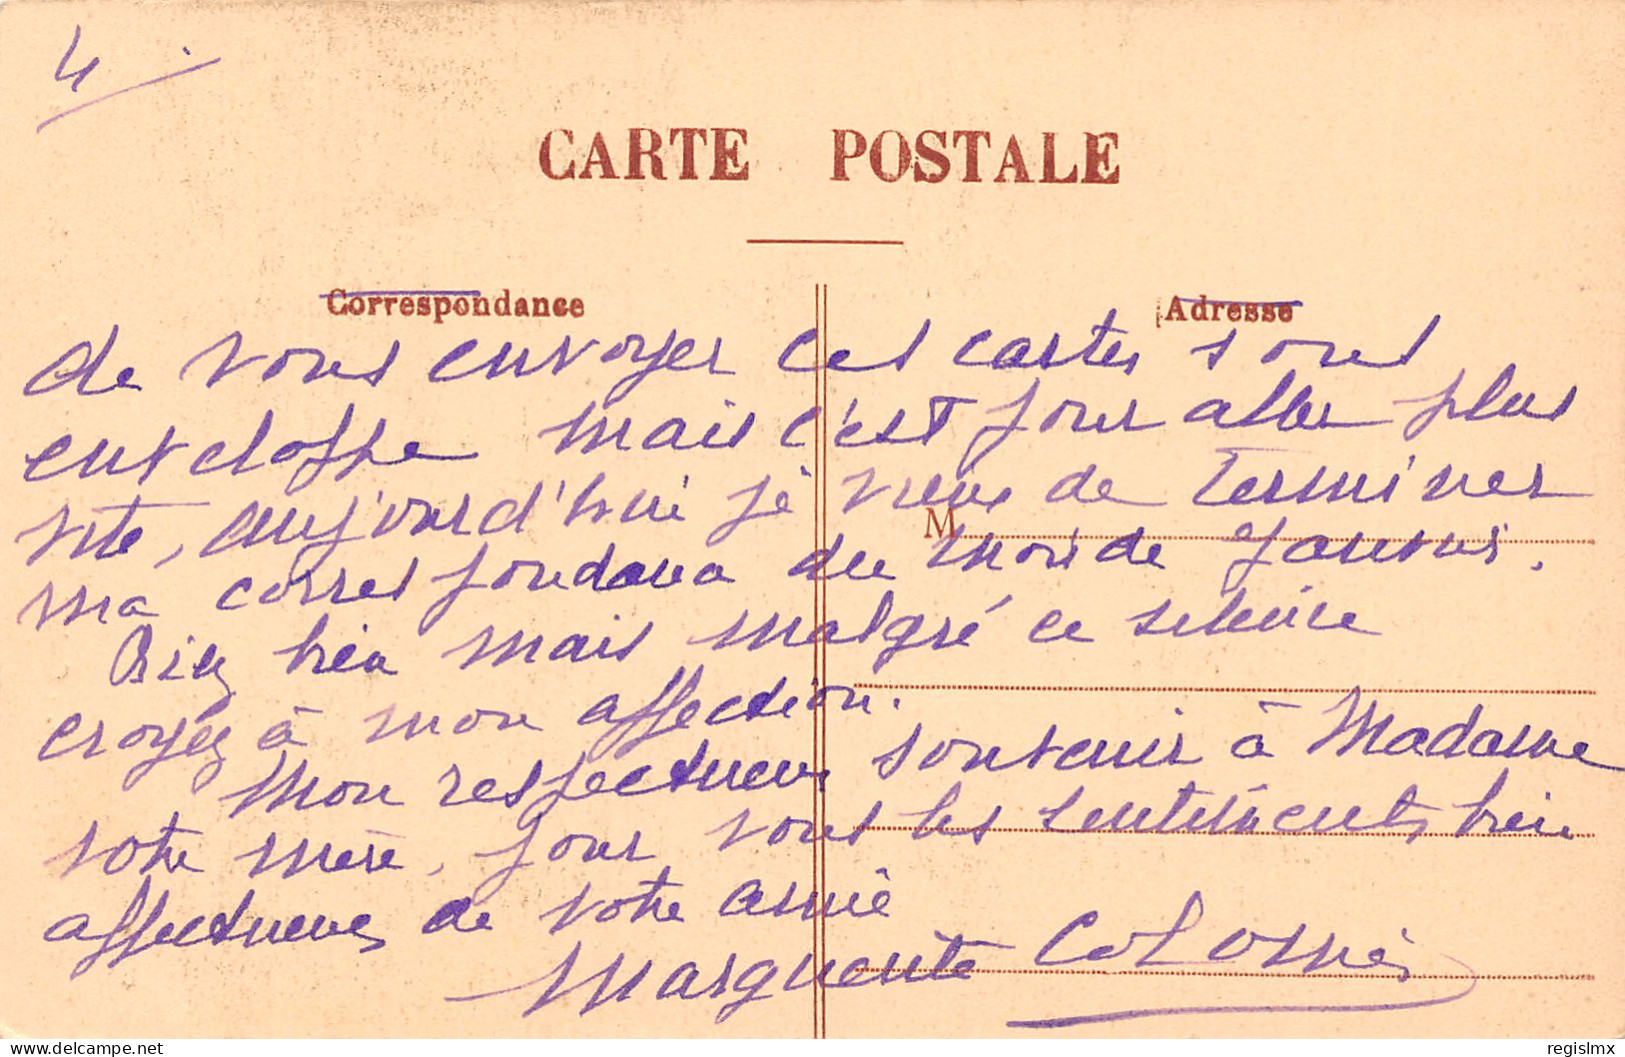 4
CARTE POSTALE
Correspondance
Adresse
de vous envoyer ces cartes sous
enveloppe mais c'est pour aller plus
vite, aujourd'hui je viens de terminer
M
ma correspondance du mois de Janvier.
bien mais malgré ce silence
croyez à mon affection.
Mon respectueux souvenir à Madame
votre mère, pour vous les sentiments bien
affectueux de votre amie
Marguerite
delcampe.net
regislmx